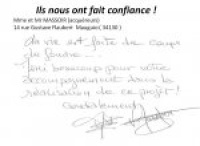 Ils nous ont fait confiance !
Mme et Mr MASSOIR (acquéreurs)
14 rue Gustave Flaubert- Mauguio( 34130 )
La vie est faite de coups
de foudre...
Merci beaucoup pour votre
accompagnement dans la
réalisation de ce projet!
Cordialement